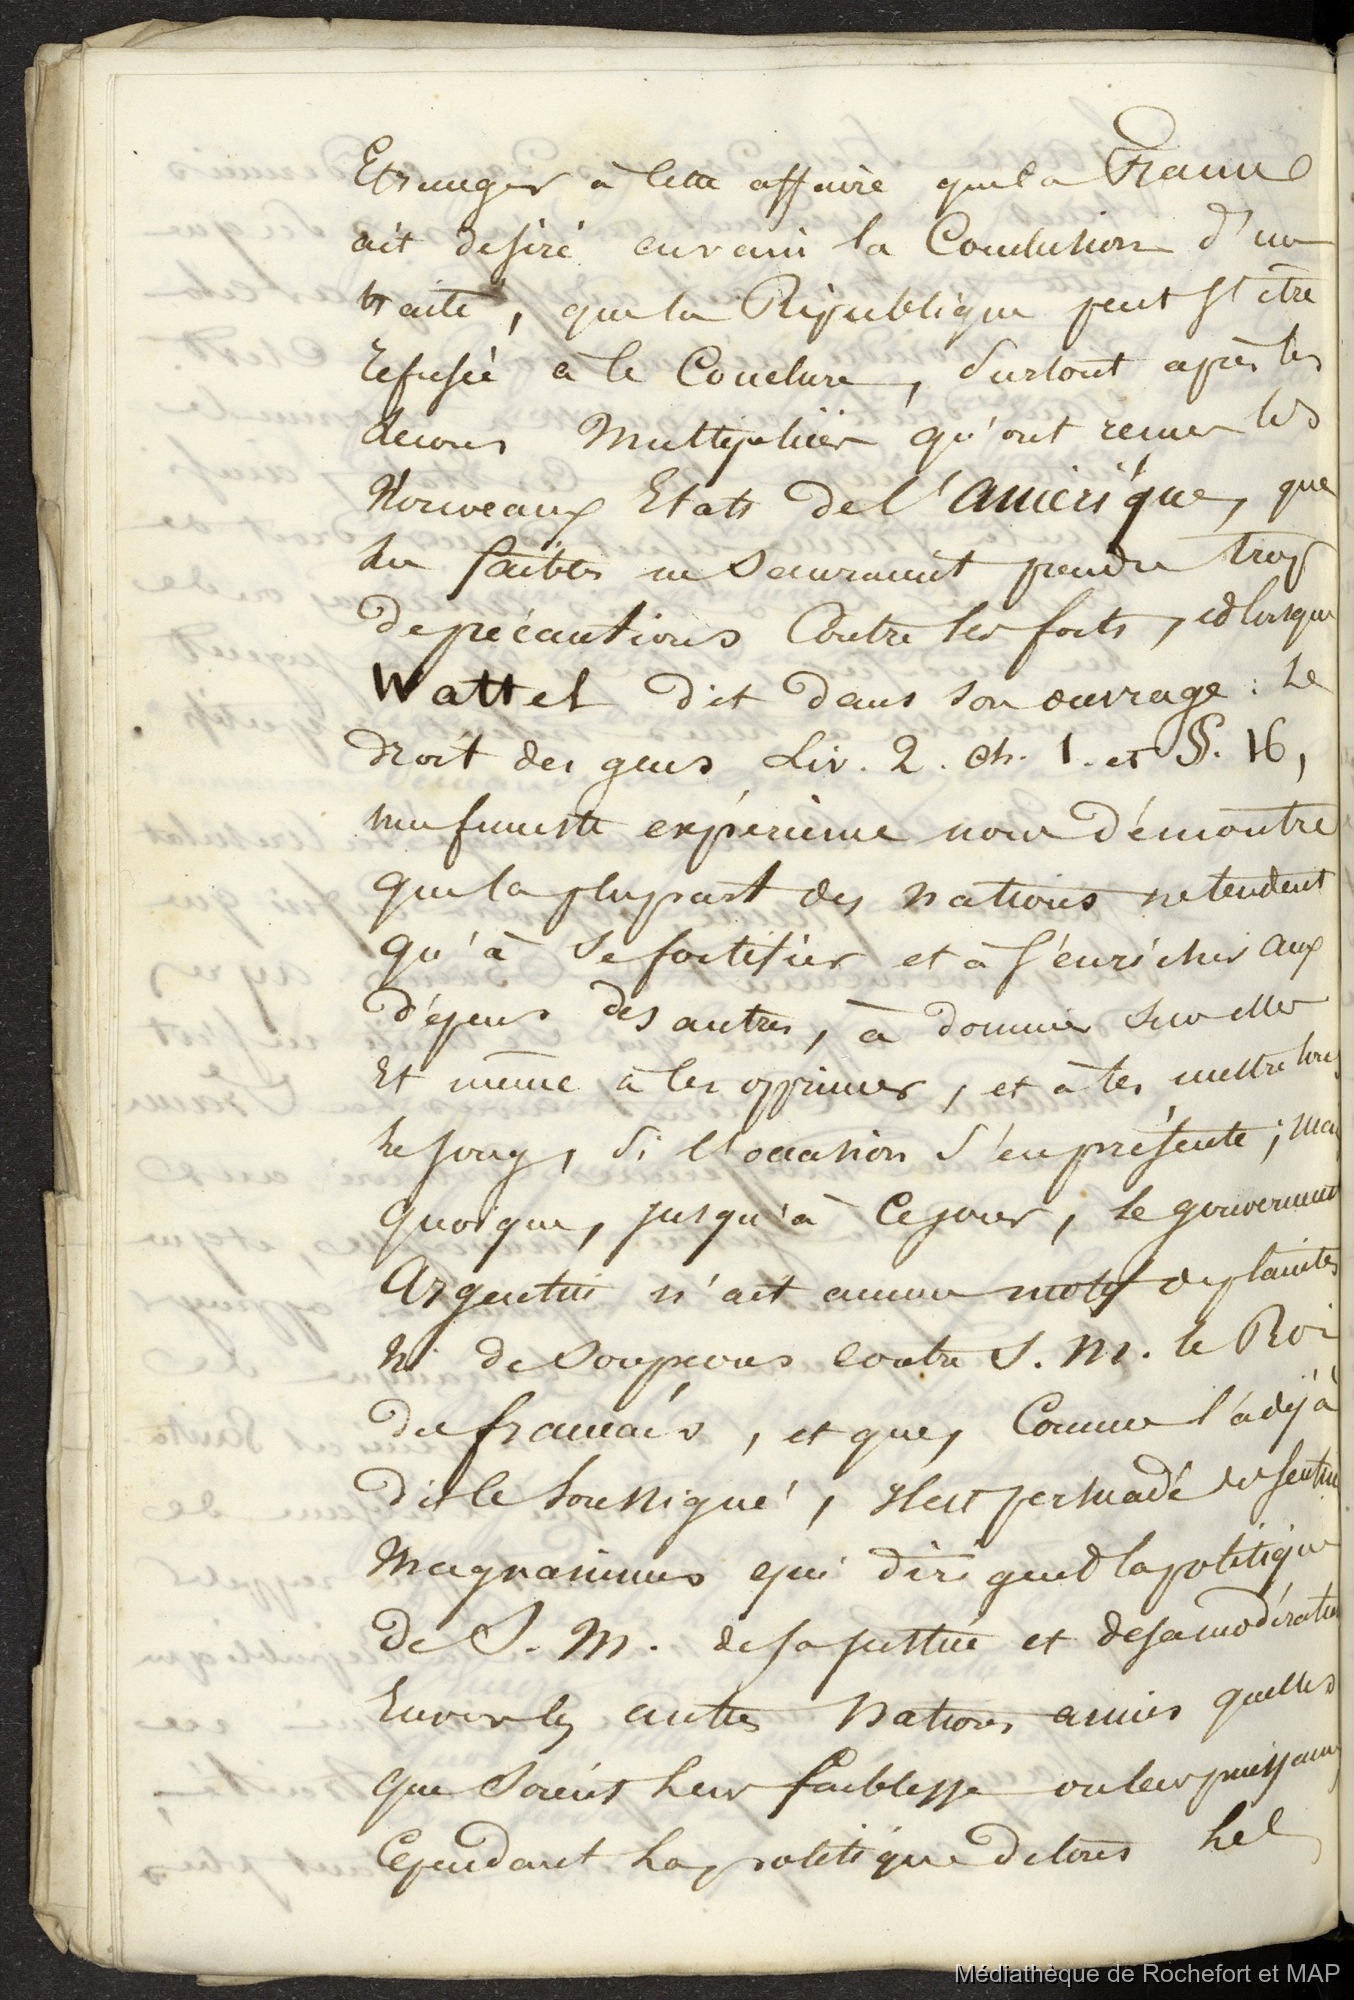 Etranger à cette affaire que la France
ait desiré envain la Conclusion d'un
traité, que la République peut s'être
refusée à le Conclure, surtout après les
lecons Multipliées qu'ont recues les
Nouveaux Etats de l'amérique, que
les faibles ne sauraient prendre trop
de précautions Contre les forts, et lorsque
Wattel dit dans son ouvrage : Le
droit des gens Liv. 2. Ch. 1. et §. 16,
une funeste expérience nous démontre
que la plupart des nations ne tendent
qu'à se fortifier et à s'enrichir aux
dépens des autres, à dominer sur elles
Et même à les opprimer, et à les mettre sous
le joug, si l'occasion s'en présente ; mais
quoique, jusqu'à ce jour, le gouvernement
Argentin n'ait aucun motif de plaintes
ni de soupcons contre S. M. le Roi
des francais, et que, Comme l'a déjà
dit le soussigné, il est persuadé des sentimens
Magnanimes qui dirigent la politique
de S. M. de sa justice et de sa modération
Envers les autres Nations amies quelles
que soient leur faiblesse ou leur puissance
Cependant la politique de tous les
Médiathèque de Rochefort et MAP